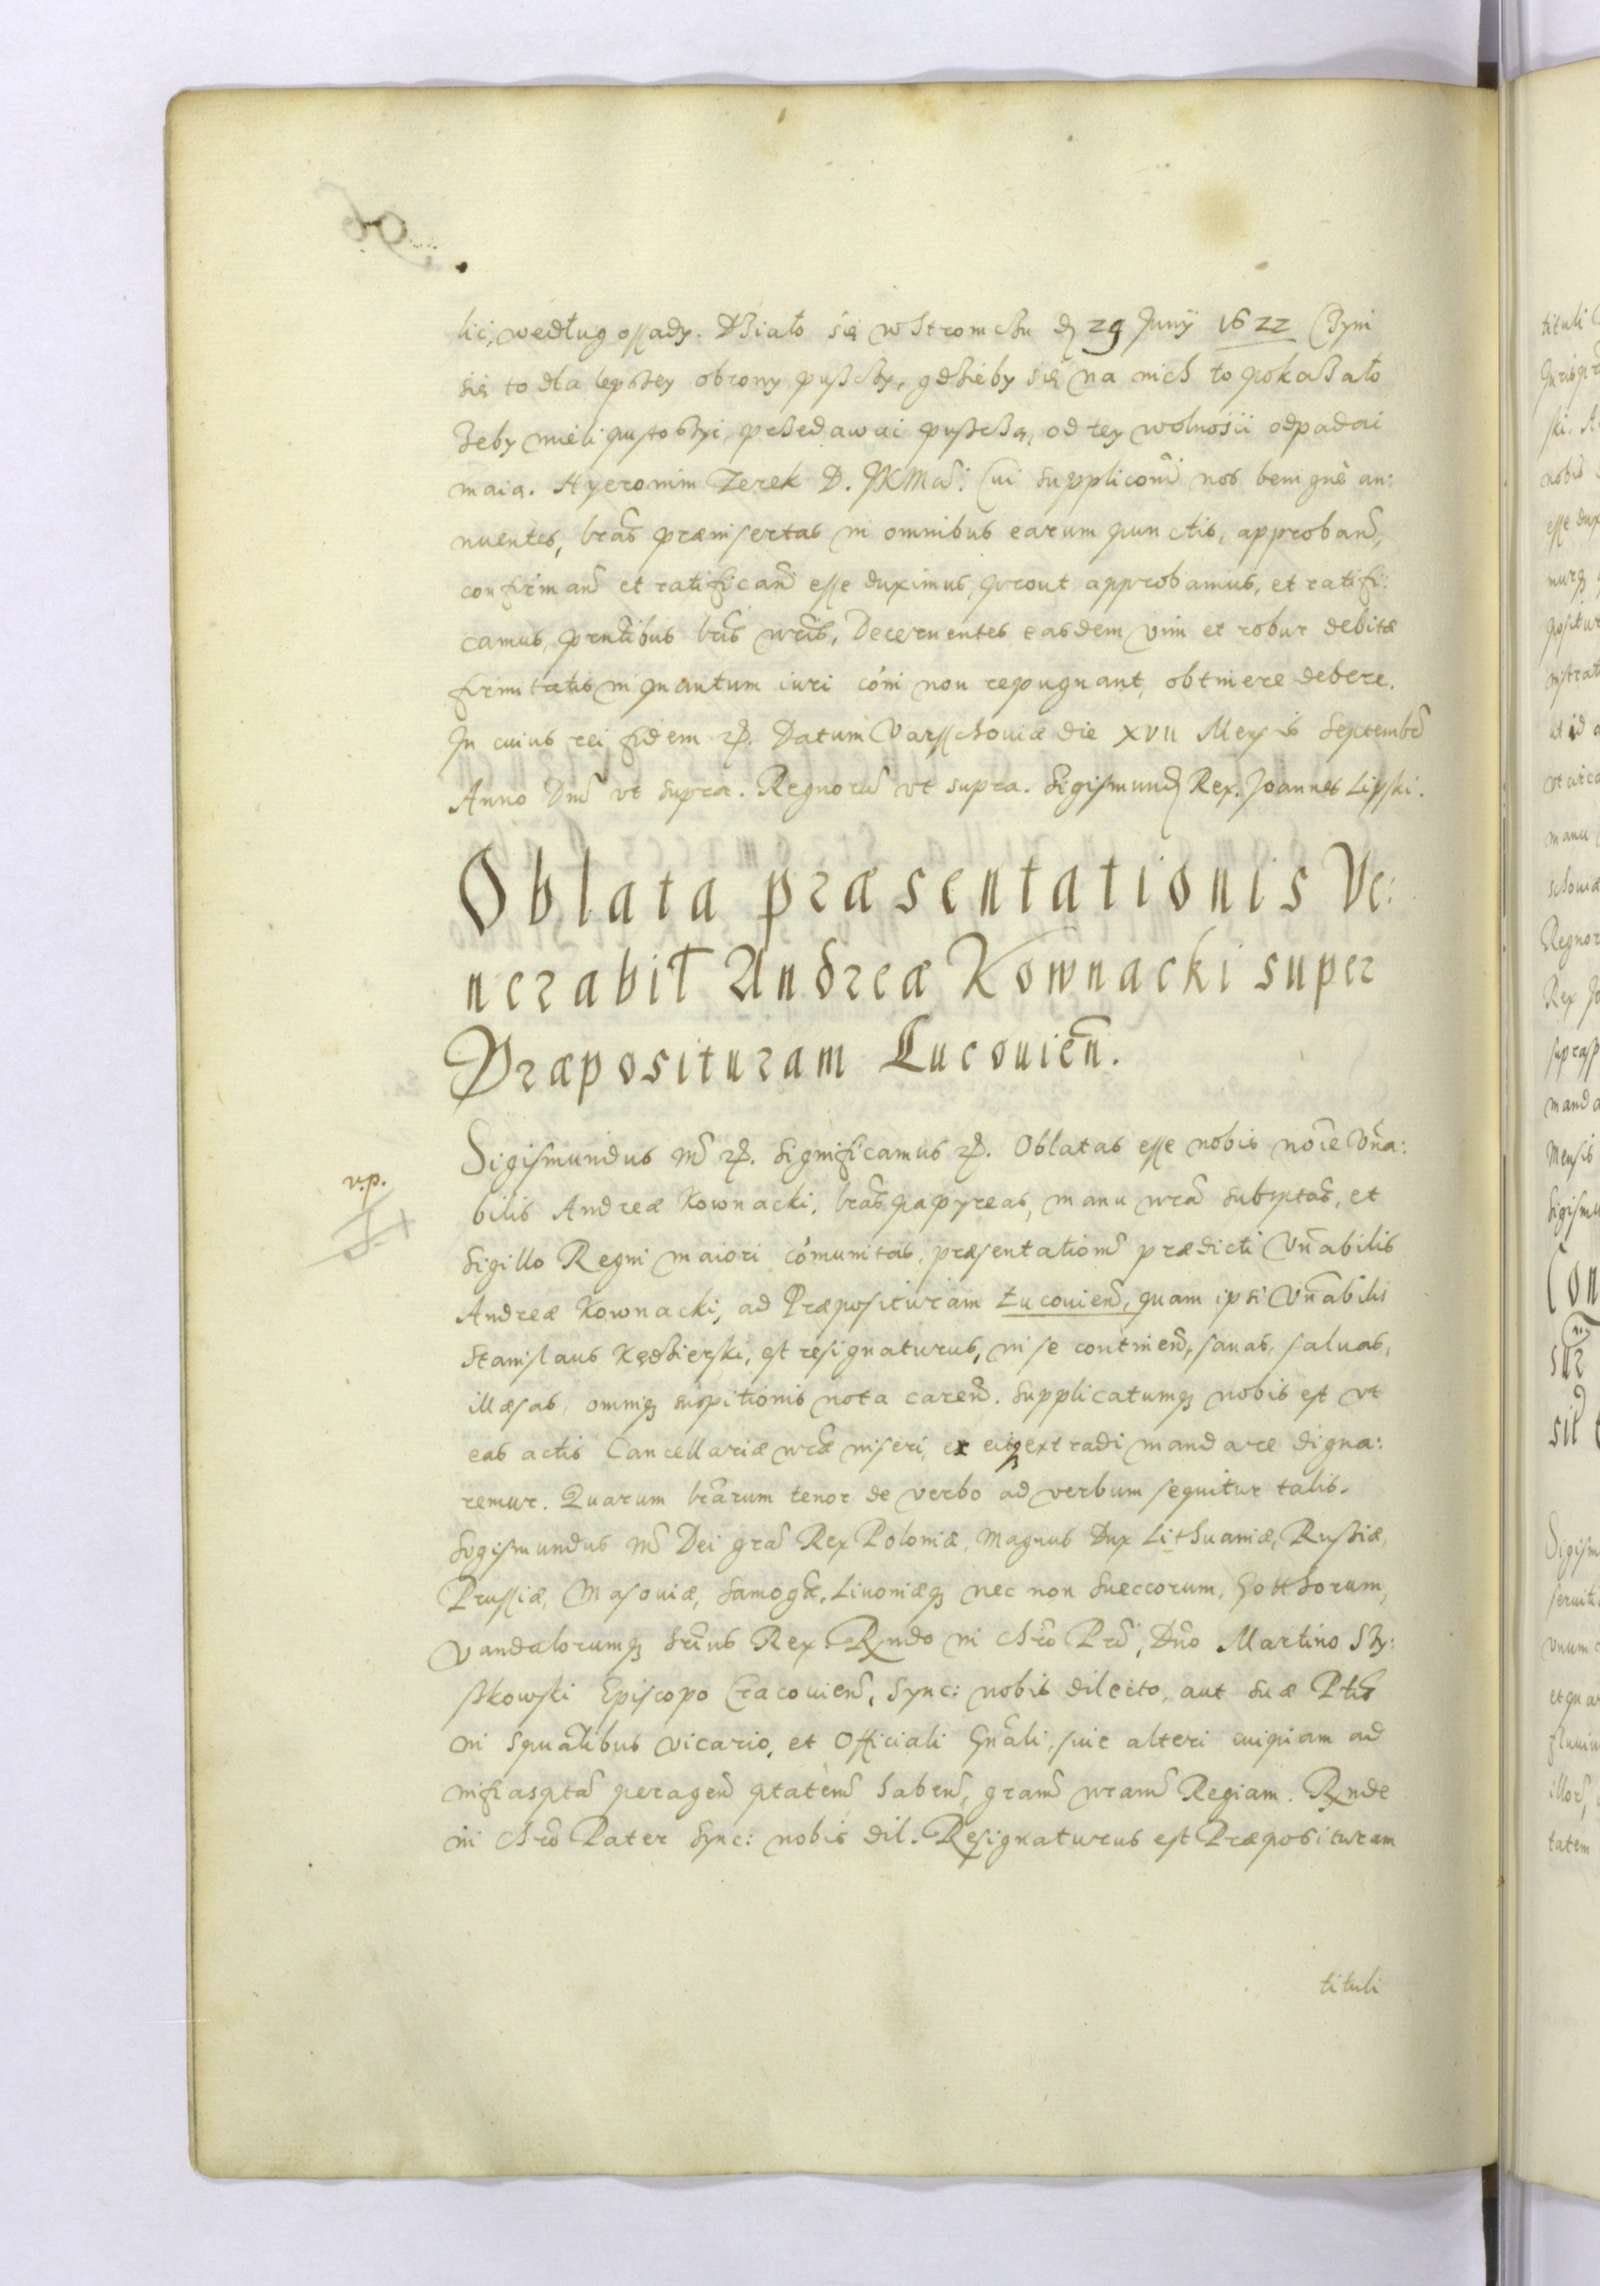 lic, według ossady. Działo się w Stromczu d. 29 Junÿ 1622 Czyni
się to dla lepszey obrony puszczy, gdzieby się na nich to pokazało
żeby mieli pustoszyć, przedawać puszczą, od tey wolności odpadać
maią. Hyeronim Zerek D. JKMći: Cui suppliconi nos benignè an:
nuentes, lras præinsertas in omnibus earum punctis, approband,
confirmand et ratificand esse duximus, prout approbamus, et ratifi:
camus, prntibus lris nris, Decernentes easdem vim et robur debitæ
firmitatis in quantum iuri coi non repugnant, obtinere debere.
In cuius rei fidem &. Datum Varsschouiæ die XVII Mensis Septembr
Anno Dni vt supra. Regnoru vt supra. Sigismund Rex. Joannes Lipski.
Oblata præsentationis Ve:
nerabil Andreæ Kownacki super
Præposituram Lucouien.
v.p.
Sigismundus 3 &. Significamus &. Oblatas esse nobis noie Vnra:
bilis Andreæ Kownacki, lras papyreas, manu nra subsptas, et
Sigillo Regni maiori comunitas, præsentationis prædicti Vnrabilis
Andreæ Kownacki, ad Præposituram Łucouien, quam ipsi Vnrabilis
Stanislaus Kędzierski, est resignaturus, in se continen, sanas, saluas,
illæsas, omniq suspitionis nota caren. Supplicatumq nobis est vt
eas actis Cancellariæ nræ inseri, ex eisq extradi mandare digna:
remur. Quarum lrarum tenor de verbo ad verbum sequitur talis.
Sigismundus 3 Dei gra Rex Poloniæ, Magnus Dux Lithuaniæ, Russiæ,
Prussiæ, Masouiæ, Samogæ, Liuoniæq nec non Sueccorum, Gotthorum,
Vandalorumq hrius Rex. Rndo in Chro Pri, Dno Martino Szy:
szkowski Episcopo Cracouien, Sync: nobis dilecto, aut suæ Ptis
in Spualibus vicario, et Officiali Gnali, siue alteri cuipiam ad
infraspta peragen ptatem haben, gram nram Regiam. Rnde
in Chro Pater Sync: nobis dil. Resignaturus est Præposituram
tituli